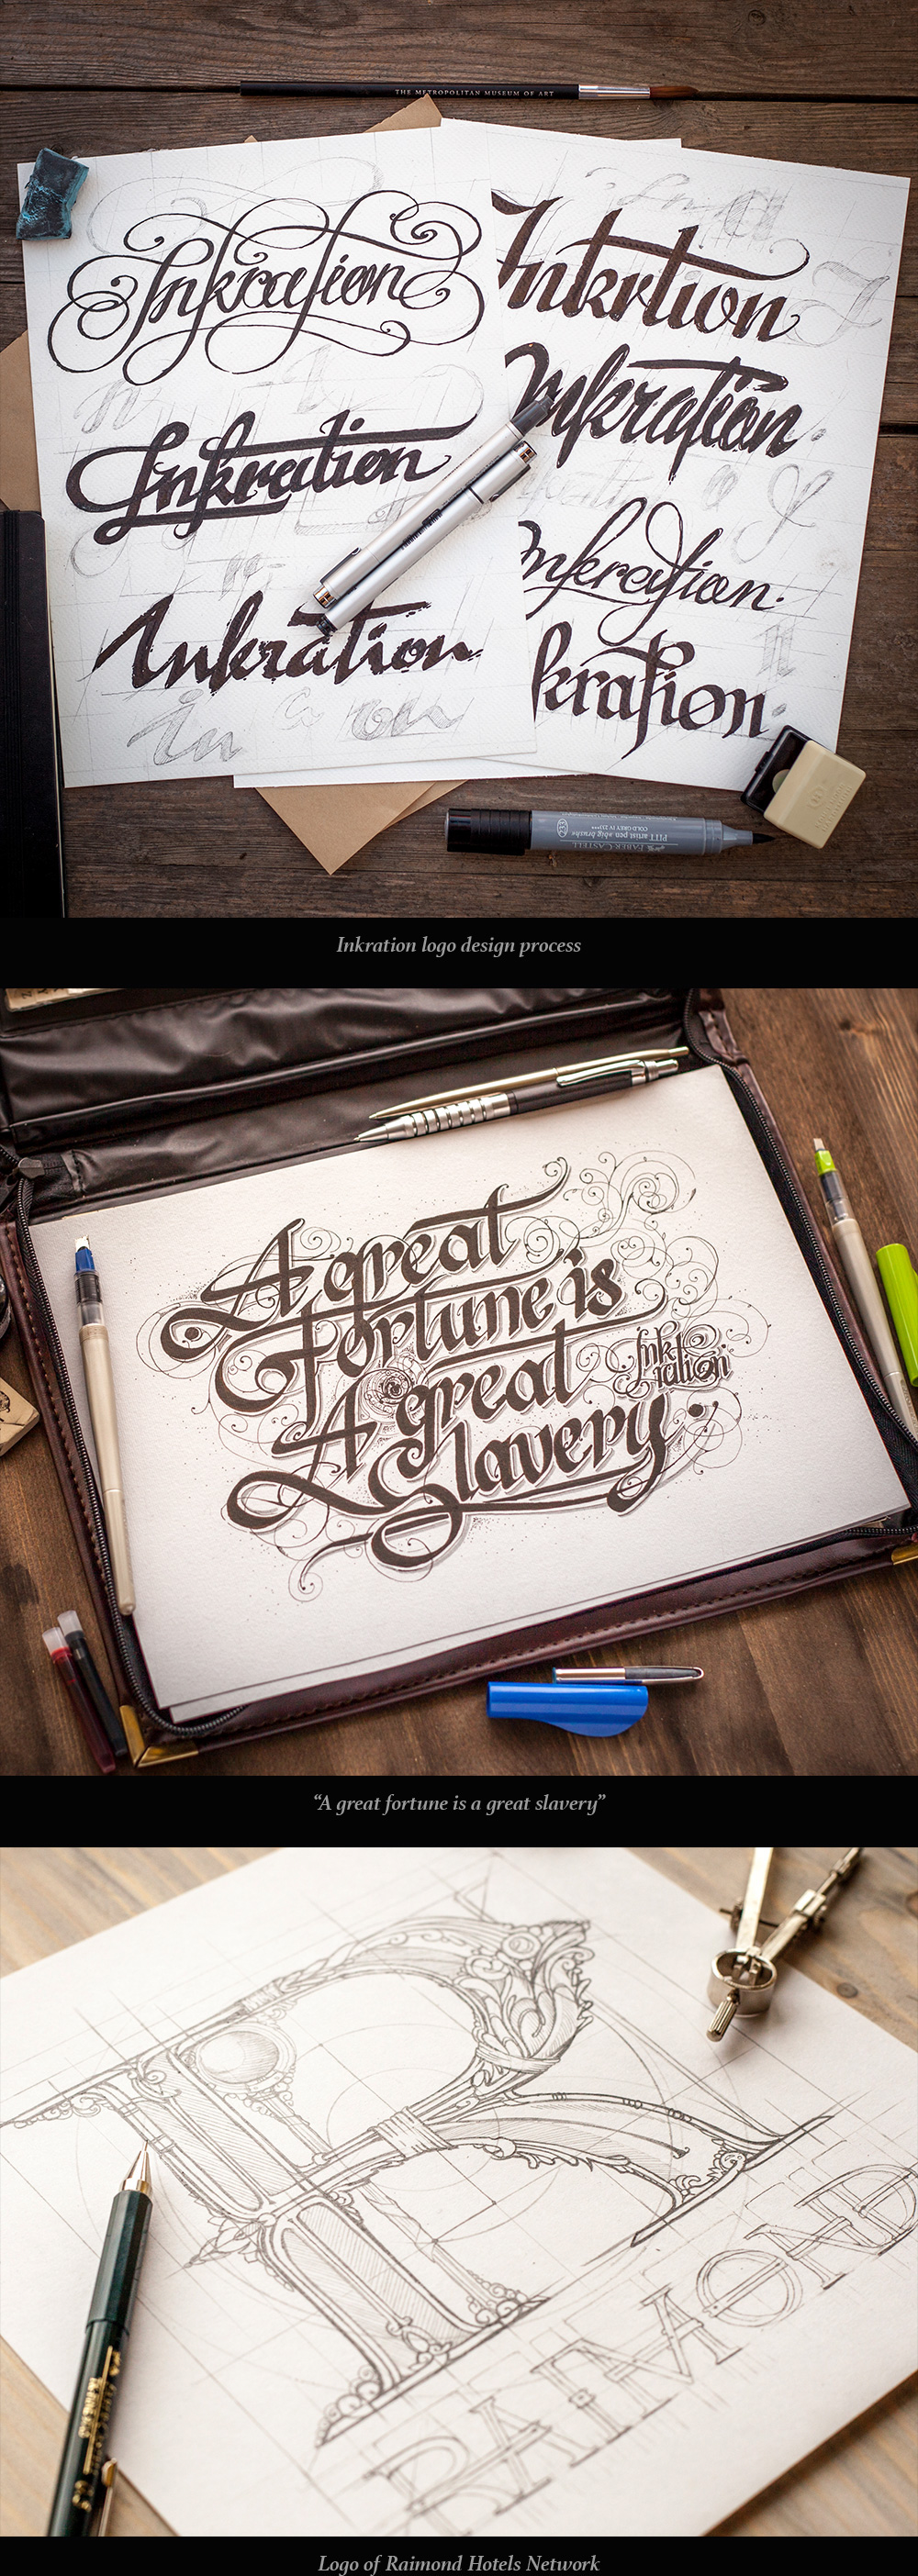 THE METROPOLITAN MUSEUM OF ART
Inkration
Inkrtion
Inkration
Inkration
Inkration
Inkration
kration
in a on
PITT artist pen big brush
COLD GREY IV 233***
FABER-CASTELL
Inkration logo design process
A great
Fortune is
A great
Slavery.
Inkt
ration
“A great fortune is a great slavery”
R
RAIMOND
Logo of Raimond Hotels Network